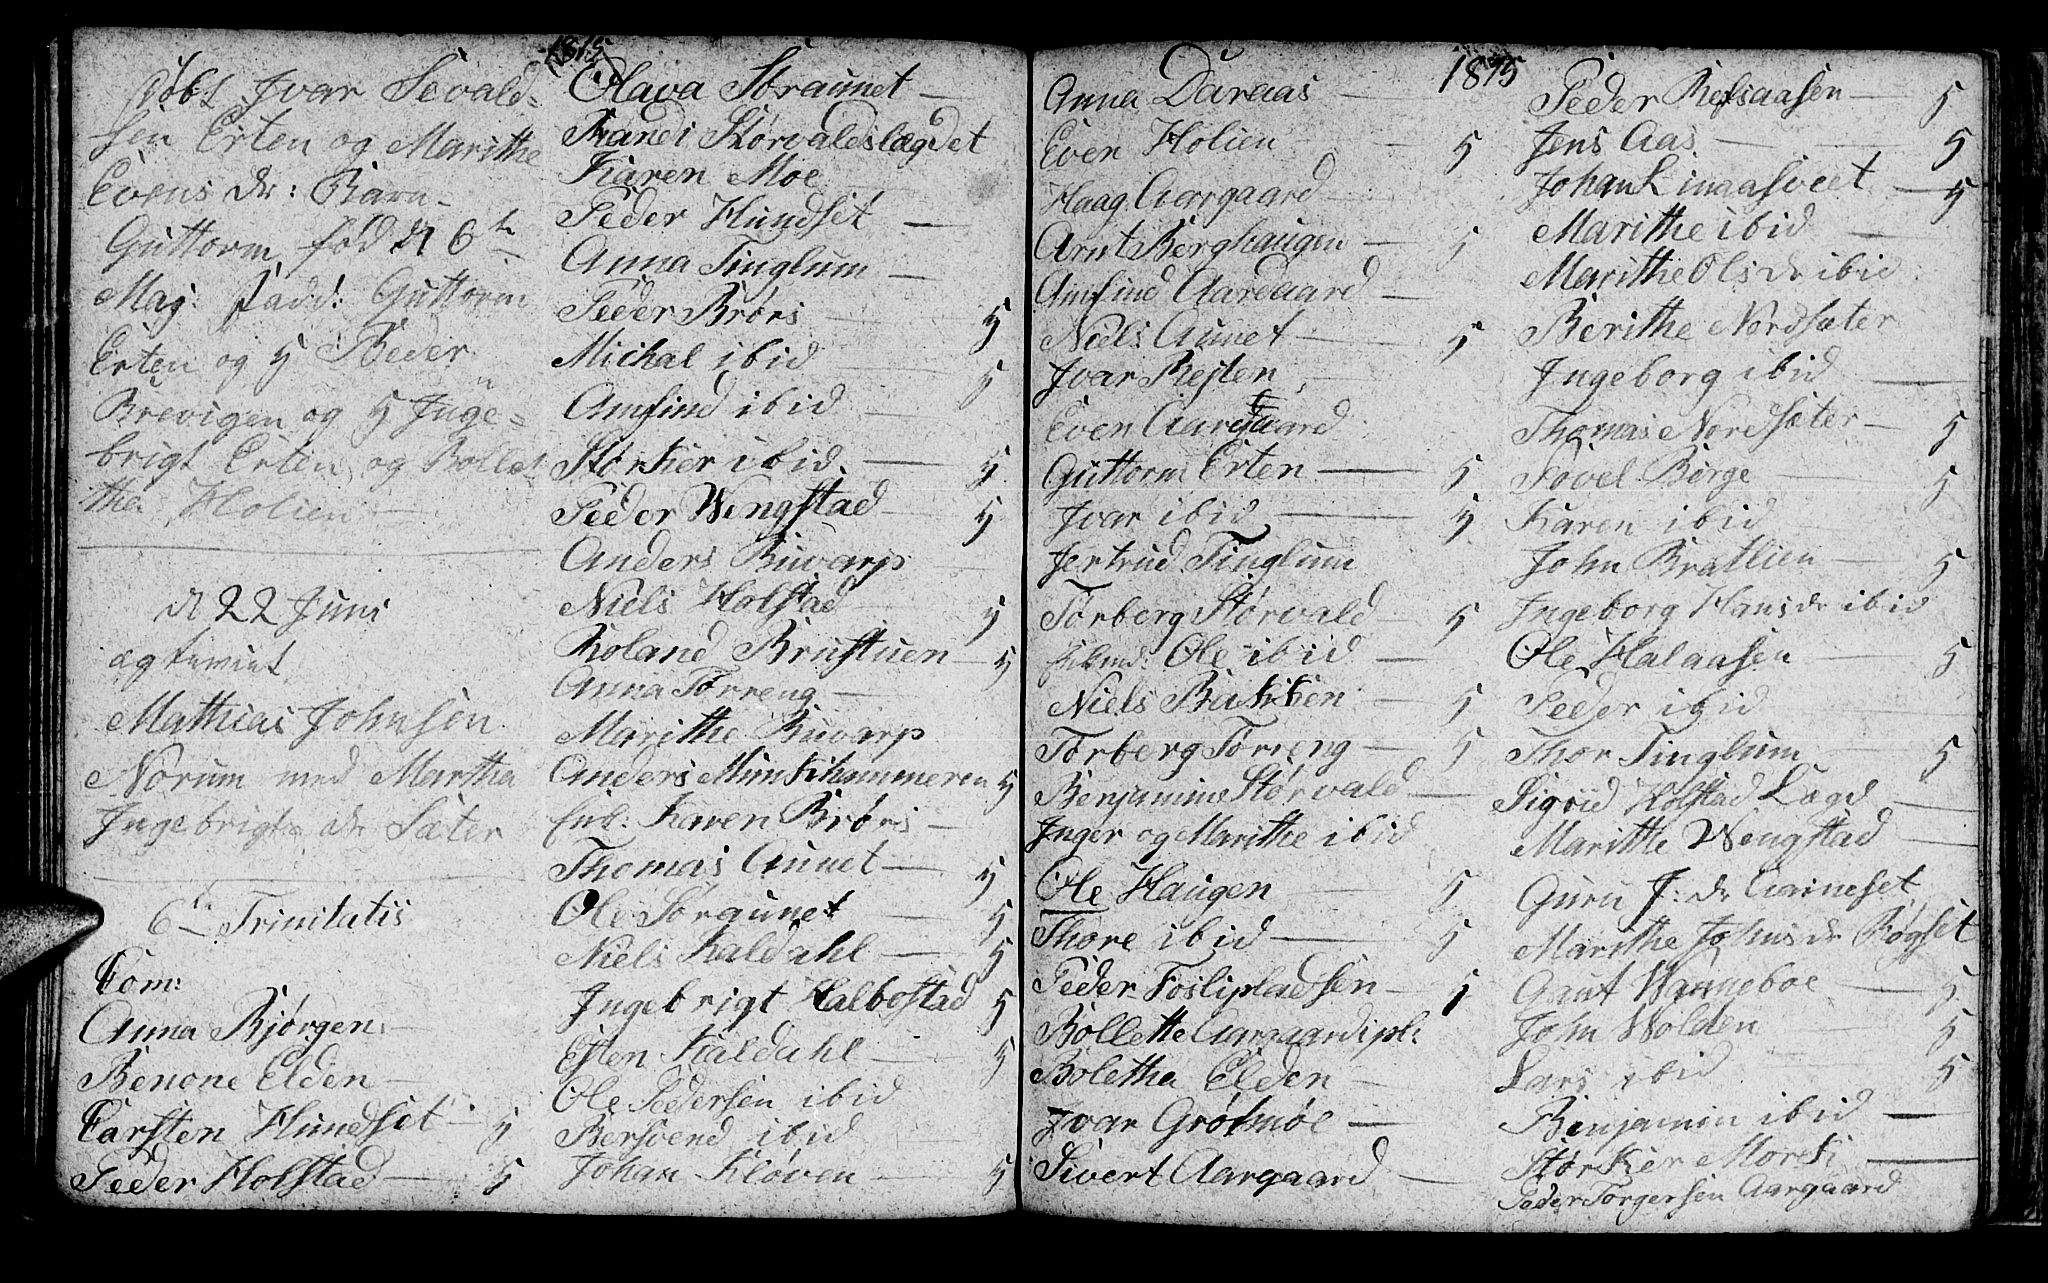 1815
døbt Ivar Sevald-
sen Erten og Marithe
Evens dr: Barn
Guttorm fød d 6te
Maj. Fadd: Guttorm
Erten og H Peder
Brevigen og H Inge-
brigt Erten og Bollet
tha Holien
d 22 Juni
ægteviet
Mathias Johnsen
Norum med Martha
Ingebrigts dr Sæter
6te Trinitatis
Com:
Anna Bjørgen
Benone Elden
Carsten Hundset H
Peder Holstad H
Olava Søraunet
Randi Størvaldslægdet
Karen Moe
Peder Hundset
Anna Tinglum
Peder Brørs H
Michal ibid H
Amfind ibid
Størker ibid H
Peder Wengstad H
Anders Buvarp
Niels Holstad H
Roland Brustuen H
Anna Tørreng
Marithe Buvarp
Anders Munkhammeren H
Karen Brørs
Thomas Aunet H
Ole Søraunet H
Niels Kaldahl H
Ingebrigt Halbostad H
Esten Kaldahl H
Ole Pedersen ibid
Bersvend ibid
Johan Kløven H
1815
Anna Daraas
Even Holien H
Haag. Aargaard
Arnt Berghaugen H
Amfind Aargaard
Niels Aunet H
Ivar Rejten
Even Aargaard
Guttorm Erten H
Ivar ibid H
Jertrud Tinglum
Torberg Størvald H
Ole ibid
Niels Bakken H
Torberg Tørreng H
Benjamine Størvald
Inger og Marithe ibid
Ole Haugen H
Thore ibid H
Peder Fosslipladsen
Bollette Aargaardspl:
Boletha Elden
Ivar Grøtmøe
Sivert Aargaard
Peder Refsaasen H
Jens Aas H
Johan Linaasveet H
Marithe ibid
Marithe Ols dr ibid
Berithe Nordsæter
Ingeborg ibid
Thomas Nordsæter H
Povel Børge H
Karen ibid
John Bratlien H
Ingeborg Hans dr ibid
Ole Halaasen H
Peder ibid
Thor Tinglum H
Sigrid Holstad Lægd
Marithe Wengstad
Guru J: dr
Marithe Johns dr Bøgset
Gaut Wanneboe H
John Wolden H
Lars ibid H
Benjamin ibid
Størker Mørk
Peder Torgersen Aargaard